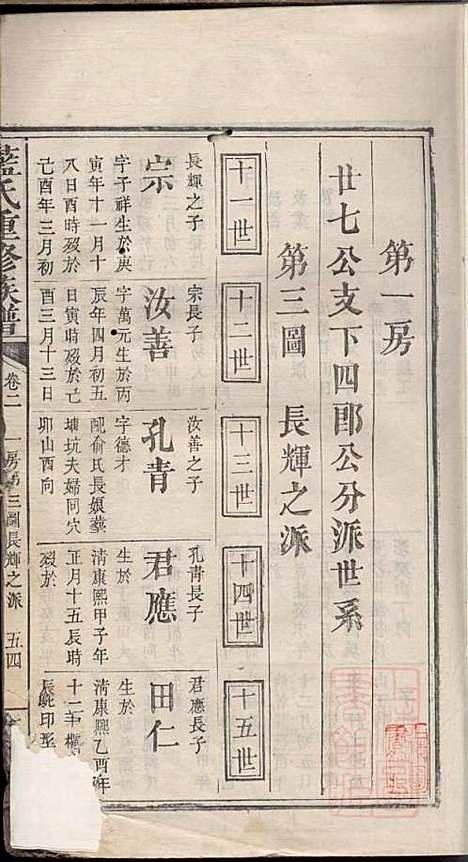 第一房
廿七公支下四郎公分派世系
第三圖　長輝之派
十一世
十二世
十三世
十四世
十五世
長輝之子
宗
字子祥生於庚
寅年十一月十
八日酉時歿於
己酉年三月初
宗長子
汝善
字萬元生於丙
辰年四月初五
日寅時歿於己
酉三月十三日
汝善之子
孔青
字德才
配俞氏長娘葬
塘坑夫婦同穴
卯山酉向
孔青長子
君應
生於
清康熙甲子年
正月十五辰時
歿於
君應長子
田仁
生於
清康熙乙酉年
十二
藍氏重修族譜
卷二
一房第三圖長輝之派
五四